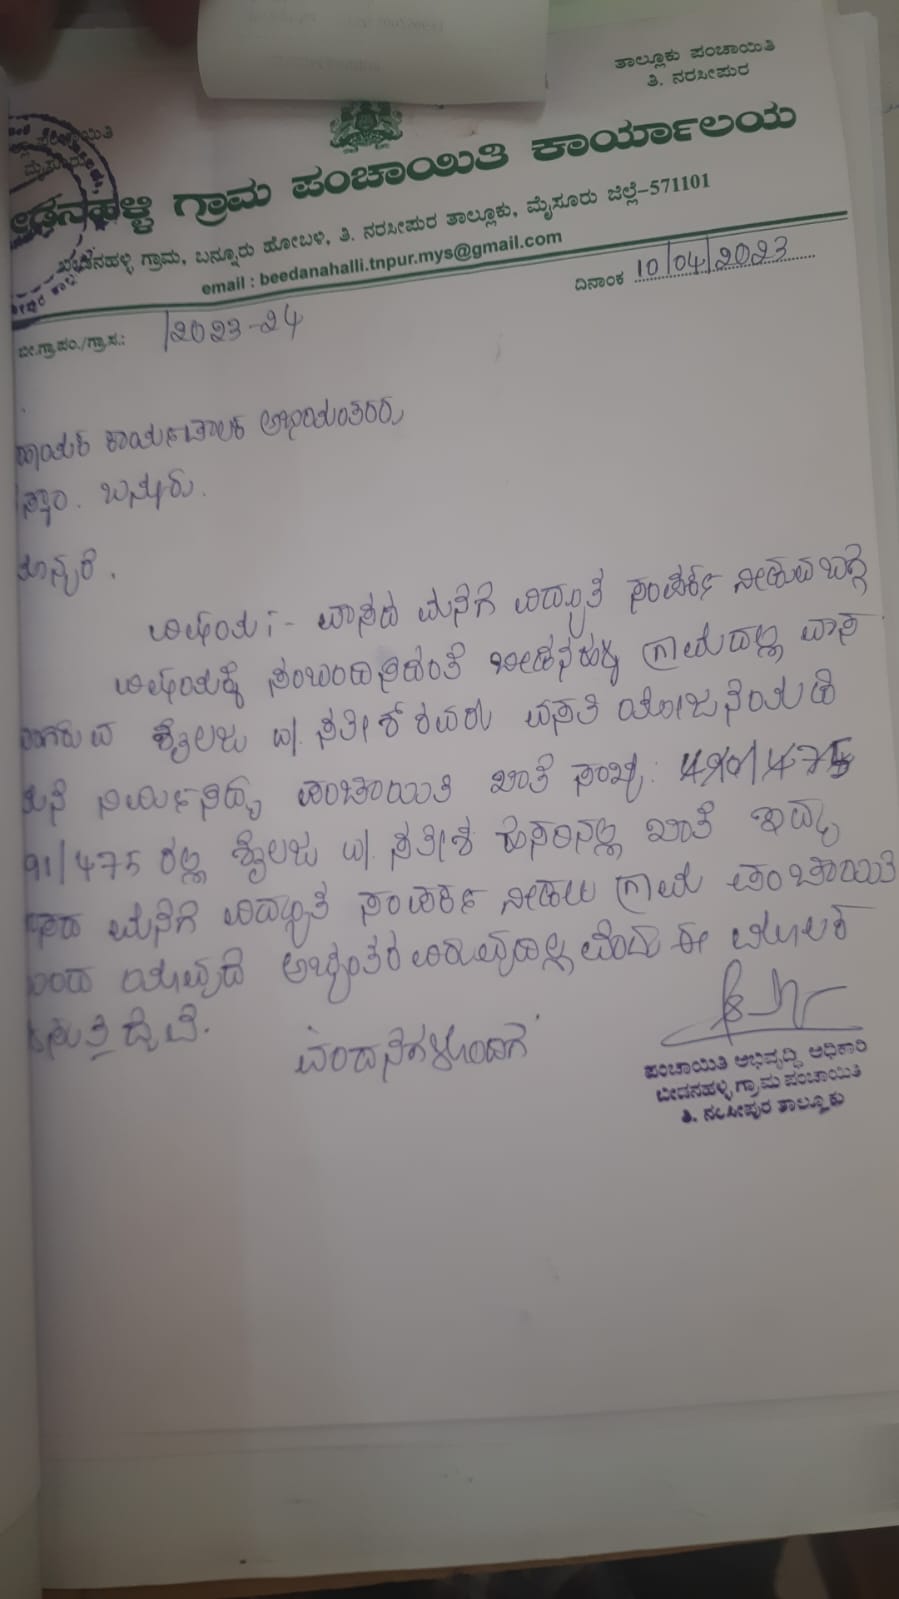 ತಾಲ್ಲೂಕು ಪಂಚಾಯಿತಿ
ತಿ. ನರಸೀಪುರ
ಮೈಸೂರು
ಗ್ರಾಮ ಪಂಚಾಯಿತಿ ಕಾರ್ಯಾಲಯ
ಬೀಡನಹಳ್ಳಿ ಗ್ರಾಮ, ಬನ್ನೂರು ಹೋಬಳಿ, ತಿ. ನರಸೀಪುರ ತಾಲ್ಲೂಕು, ಮೈಸೂರು ಜಿಲ್ಲೆ-571101
email : beedanahalli.tnpur.mys@gmail.com
ದಿನಾಂಕ 10/04/2023
ಬೀ.ಗ್ರಾ.ಪಂ./ಗ್ರಾ.ಸ.: /2023-24
ಕಾರ್ಯಪಾಲಕ ಅಭಿಯಂತರರು
ಬನ್ನೂರು.
ಮಾನ್ಯರೆ.
ವಿಷಯ :- ವಾಸದ ಮನೆಗೆ ವಿದ್ಯುತ್ ಸಂಪರ್ಕ ನೀಡುವ ಬಗ್ಗೆ
ವಿಷಯಕ್ಕೆ ಸಂಬಂದಿಸಿದಂತೆ ಬೀಡನಹಳ್ಳಿ ಗ್ರಾಮದಲ್ಲಿ ವಾಸ
ಶೈಲಜ w/. ಸತೀಶ್ ರವರು ವಸತಿ ಯೋಜನೆಯಡಿ
ಮನೆ ನಿರ್ಮಿಸಿದ್ದು ಪಂಚಾಯಿತಿ ಖಾತೆ ಸಂಖ್ಯೆ:
91/475 ರಲ್ಲಿ ಶೈಲಜ w/. ಸತೀಶ ಹೆಸರಿನಲ್ಲಿ ಖಾತೆ ಇದ್ದು
ಮನೆಗೆ ವಿದ್ಯುತ್ ಸಂಪರ್ಕ ನೀಡಲು ಗ್ರಾಮ ಪಂಚಾಯಿತಿ
ಯಾವುದೆ ಅಭ್ಯಂತರ ವಿರುವುದಿಲ್ಲ ವೆಂದು ಈ ಮೂಲಕ
ವಂದನೆಗಳೊಂದಿಗೆ
ಪಂಚಾಯಿತಿ ಅಭಿವೃದ್ಧಿ ಅಧಿಕಾರಿ
ಬೀಡನಹಳ್ಳಿ ಗ್ರಾಮ ಪಂಚಾಯಿತಿ
ತಿ. ನರಸೀಪುರ ತಾಲ್ಲೂಕು